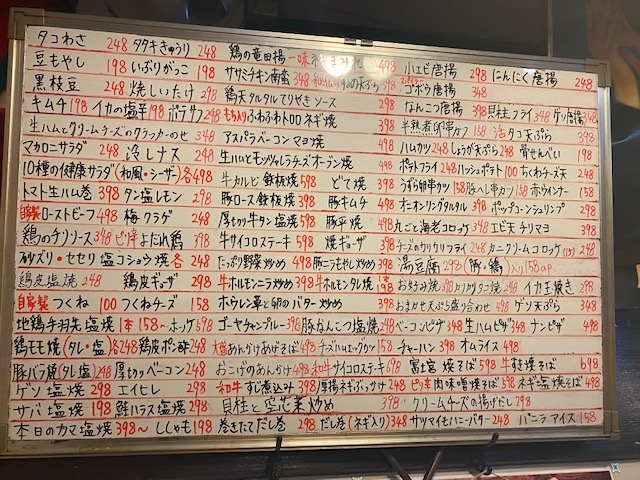 タコわさ 248 タタキきゅうり 248 鶏の竜田揚 一味ネギまみれ 498 小エビ唐揚 298 にんにく唐揚 248
豆もやし 198 いぶりがっこ 198 ササミチキン南蛮 348 の天ぷら 398 ゴボウ唐揚 348
黒枝豆 248 焼しいたけ 298 鶏天タルタルてりやきソース 298 なんこつ唐揚 398 貝柱フライ 348 ゲソ唐揚 348
キムチ 198 イカの塩辛 198 ポテサラ 248 もち入りふわふわトロロネギ焼 398 半熟煮卵串カツ 158 タコ天ぷら 398
生ハムとクリームチーズのクラッカーのせ 348 アスパラベーコンマヨ焼 498 ハムカツ 248 しょうが天ぷら 248 骨せんべい 198
マカロニサラダ 248 冷しナス 298 生ハムとモッツァレラチーズオーブン焼 498 ポテトフライ 248 ハッシュポテト 100 ちくわチーズ天 248
10種の健康サラダ(和風・シーザー)各498 牛カルビ鉄板焼 598 どて焼 398 うずら卵串カツ 158 豚ヘレ串カツ 158 赤ウインナー 158
トマト生ハム巻 398 タン塩レモン 298 豚ロース鉄板焼 398 豚キムチ 498 オーオニリングタルタル 398 ポップコーンシュリンプ 298
自製ローストビーフ 498 梅クラゲ 248 厚切り牛タン塩焼 598 豚平焼 498 丸ごと海老コロッケ 348 エビ天チリマヨ 398
鶏のチリソース 348 ピリ辛よだれ鶏 398 牛サイコロステーキ 598 焼ギョーザ 398 チーズのカリカリフライ 248 カニクリームコロッケ(1ケ) 248
砂ズリ・セセリ塩コショウ焼 各248 たっぷり野菜炒め 498 豚ニラもやし炒め 398 湯豆腐 298(豚・鶏)入り158up
鶏皮塩焼 248 鶏皮ギョーザ 298 牛ホルモンニラ炒め 398 牛ホルモンタレ焼 398 お好み焼 398 カリカリタコ焼 248 イカキ焼き 298
自製つくね 100 つくねチーズ 158 ホウレン草と卵のバター炒め 398 おまかせ天ぷら盛り合わせ 498 ゲソ天ぷら 348
地鶏手羽先塩焼 1本158〜 ホッケ 698 ゴーヤチャンプルー 398 豚なんこつ塩焼 248 ベーコンピザ 348 生ハムピザ 498 ナンピザ 498
鶏モモ焼(タレ・塩)各248 鶏皮ポン酢 248 大盛あんかけあげそば 498 チーズハムエッグカツ 158 チャーハン 398 オムライス 498
豚バラ焼(タレ塩)248 厚切りベーコン 248 おこげのあんかけ 498 和牛サイコロステーキ 698 富士宮焼そば 598 牛すき焼そば 698
ゲソ塩焼 298 エイヒレ 298 和牛すじ煮込み 398 厚揚ネギぶっかけ 248 ピリ辛肉味噌焼そば 598 ネギ塩焼そば 498
サバ塩焼 198 鮭ハラス塩焼 298 貝柱と空芯菜炒め 398 クリームチーズの揚げだし 298
本日のカマ塩焼 398〜 ししゃも 198 巻きたてだし巻 298 だし巻(ネギ入り) 348 サツマイモハニーバター 248 バニラアイス 158